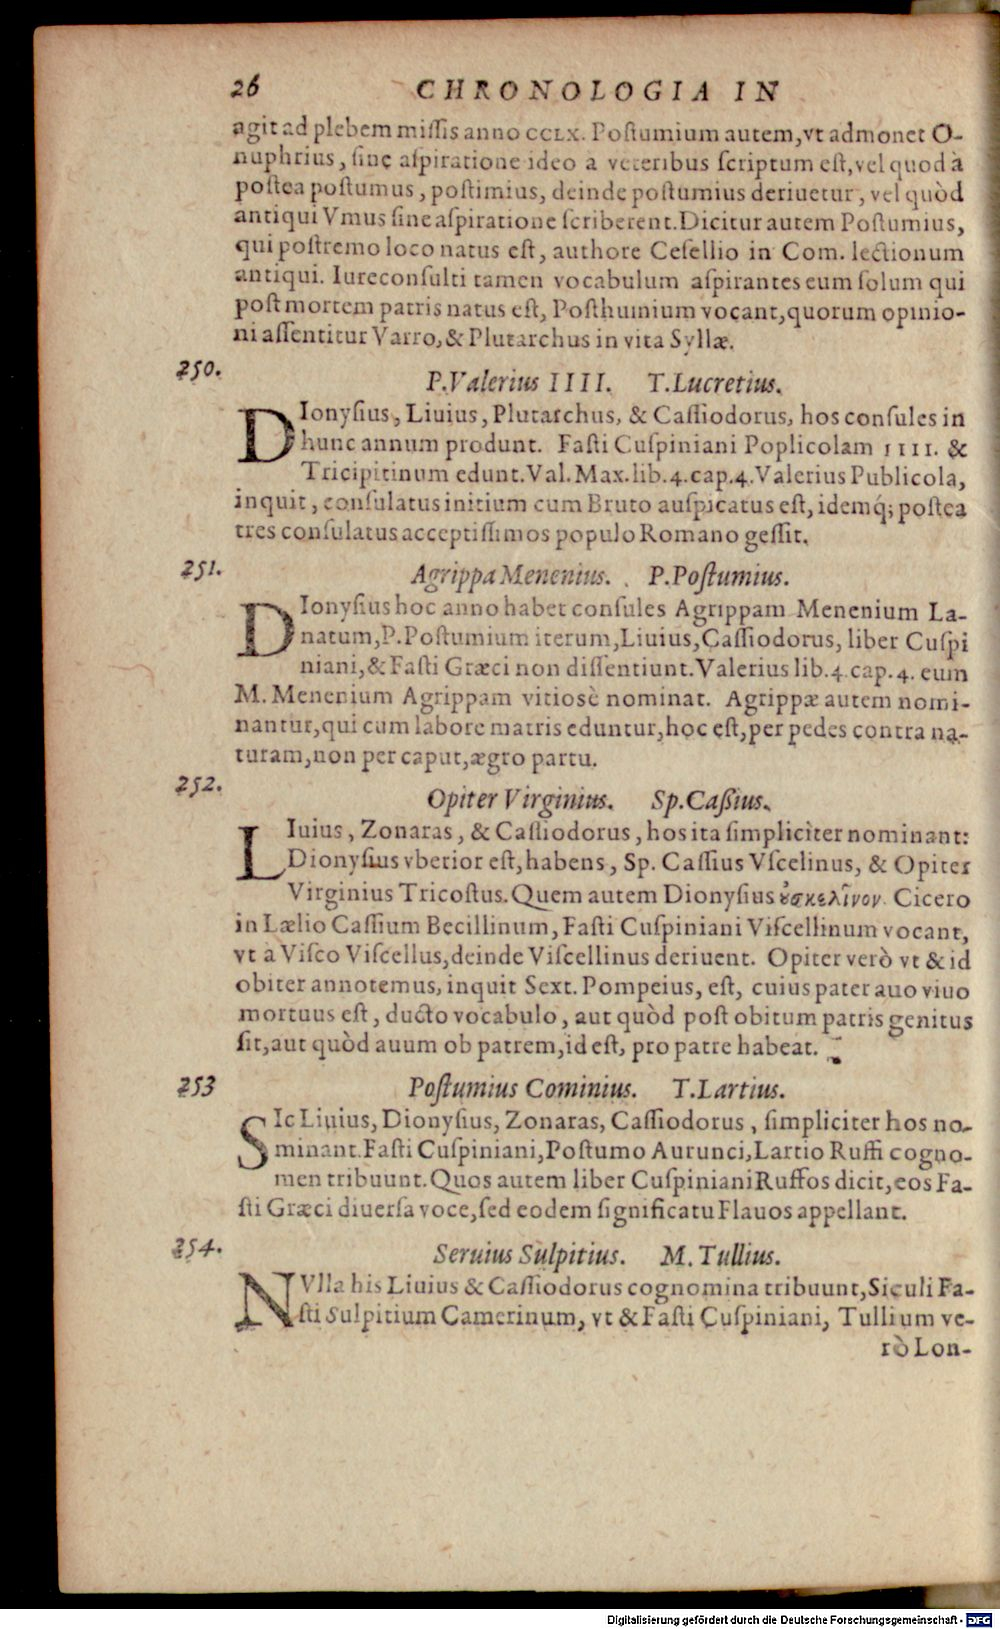 26 CHRONOLOGIA IN
agit ad plebem missis anno CCLX. Postumium autem, vt admonet O-
nuphrius, sine aspiratione ideo a veteribus scriptum est, vel quod à
postea postumus, postimius, deinde postumius deriuetur, vel quòd
antiqui Vmus sine aspiratione scriberent. Dicitur autem Postumius,
qui postremo loco natus est, authore Cesellio in Com. lectionum
antiqui. Iureconsulti tamen vocabulum aspirantes eum solum qui
post mortem patris natus est, Posthumium vocant, quorum opinio-
ni assentitur Varro, & Plutarchus in vita Syllæ.
250.
P. Valerius IIII. T. Lucretius.
DIonysius, Liuius, Plutarchus, & Cassiodorus, hos consules in
hunc annum produnt. Fasti Cuspiniani Poplicolam IIII. &
Tricipitinum edunt. Val. Max. lib. 4. cap. 4. Valerius Publicola,
inquit, consulatus initium cum Bruto auspicatus est, idemq́; postea
tres consulatus acceptissimos populo Romano gessit.
251.
Agrippa Menenius. P. Postumius.
DIonysius hoc anno habet consules Agrippam Menenium La-
natum, P. Postumium iterum, Liuius, Cassiodorus, liber Cuspi
niani, & Fasti Græci non dissentiunt. Valerius lib. 4. cap. 4. eum
M. Menenium Agrippam vitiosè nominat. Agrippæ autem nomi-
nantur, qui cum labore matris eduntur, hoc est, per pedes contra na-
turam, non per caput, ægro partu.
252.
Opiter Virginius. Sp. Cassius.
LIuius, Zonaras, & Cassiodorus, hos ita simpliciter nominant:
Dionysius vberior est, habens, Sp. Cassius Vscelinus, & Opiter
Virginius Tricostus. Quem autem Dionysius οὐσκελῖνον. Cicero
in Lælio Cassium Becillinum, Fasti Cuspiniani Viscellinum vocant,
vt à Visco Viscellus, deinde Viscellinus deriuent. Opiter verò vt & id
obiter annotemus, inquit Sext. Pompeius, est, cuius pater auo viuo
mortuus est, ducto vocabulo, aut quòd post obitum patris genitus
sit, aut quòd auum ob patrem, id est, pro patre habeat.
253
Postumius Cominius. T. Lartius.
SIc Liuius, Dionysius, Zonaras, Cassiodorus, simpliciter hos no-
minant. Fasti Cuspiniani, Postumo Aurunci, Lartio Ruffi cogno-
men tribuunt. Quos autem liber Cuspiniani Ruffos dicit, eos Fa-
sti Græci diuersa voce, sed eodem significatu Flauos appellant.
254.
Seruius Sulpitius. M. Tullius.
NVlla his Liuius & Cassiodorus cognomina tribuunt, Siculi Fa-
sti Sulpitium Camerinum, vt & Fasti Cuspiniani, Tullium ve-
rò Lon-
Digitalisierung gefördert durch die Deutsche Forschungsgemeinschaft - DFG